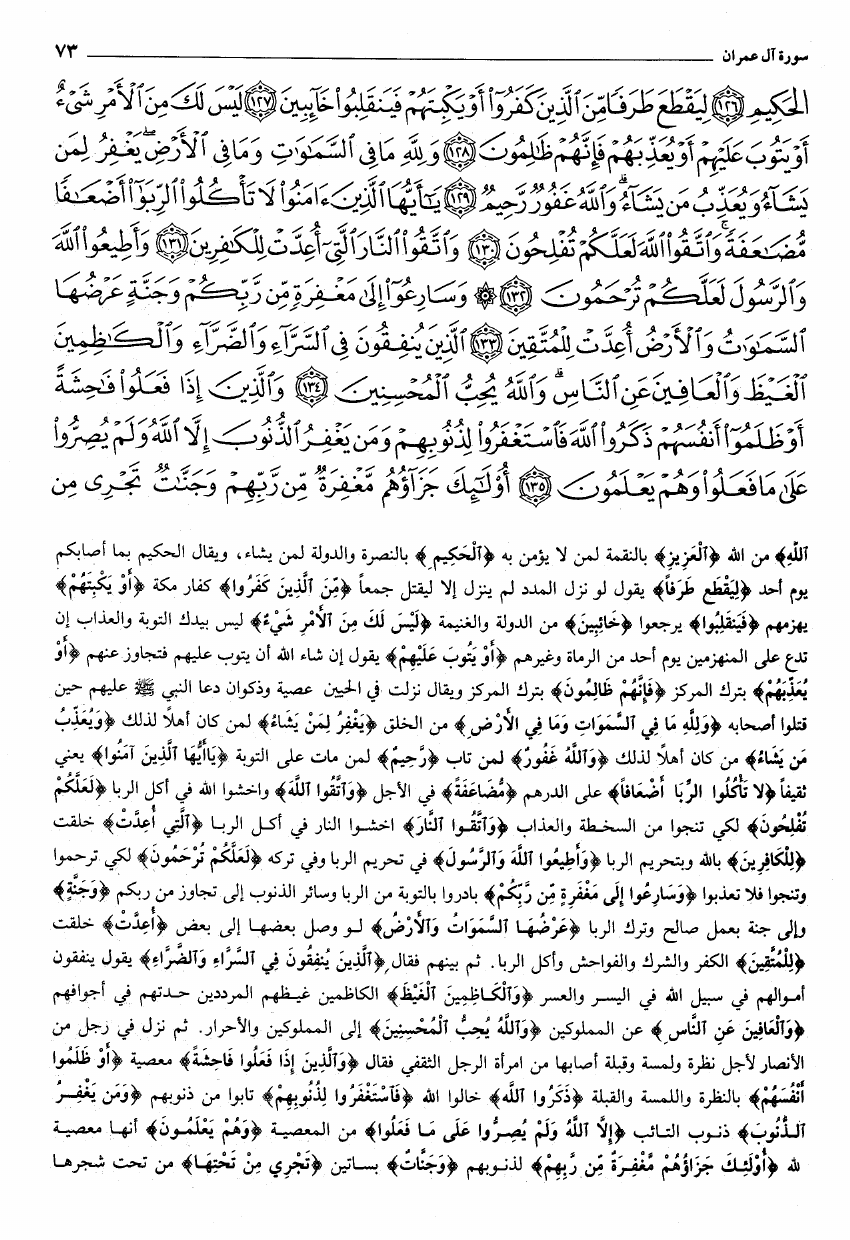 سورة آل عمران ٧٣
الْحَكِيمِ ﴿١٢٦﴾ لِيَقْطَعَ طَرَفًا مِّنَ ٱلَّذِينَ كَفَرُوٓا۟ أَوْ يَكْبِتَهُمْ فَيَنقَلِبُوا۟ خَآئِبِينَ ﴿١٢٧﴾ لَيْسَ لَكَ مِنَ ٱلْأَمْرِ شَىْءٌ
أَوْ يَتُوبَ عَلَيْهِمْ أَوْ يُعَذِّبَهُمْ فَإِنَّهُمْ ظَٰلِمُونَ ﴿١٢٨﴾ وَلِلَّهِ مَا فِى ٱلسَّمَٰوَٰتِ وَمَا فِى ٱلْأَرْضِ ۚ يَغْفِرُ لِمَن
يَشَآءُ وَيُعَذِّبُ مَن يَشَآءُ ۗ وَٱللَّهُ غَفُورٌ رَّحِيمٌ ﴿١٢٩﴾ يَٰٓأَيُّهَا ٱلَّذِينَ ءَامَنُوا۟ لَا تَأْكُلُوا۟ ٱلرِّبَوٰٓا۟ أَضْعَٰفًا
مُّضَٰعَفَةً ۖ وَٱتَّقُوا۟ ٱللَّهَ لَعَلَّكُمْ تُفْلِحُونَ ﴿١٣٠﴾ وَٱتَّقُوا۟ ٱلنَّارَ ٱلَّتِىٓ أُعِدَّتْ لِلْكَٰفِرِينَ ﴿١٣١﴾ وَأَطِيعُوا۟ ٱللَّهَ
وَٱلرَّسُولَ لَعَلَّكُمْ تُرْحَمُونَ ﴿١٣٢﴾ ۞ وَسَارِعُوٓا۟ إِلَىٰ مَغْفِرَةٍ مِّن رَّبِّكُمْ وَجَنَّةٍ عَرْضُهَا
ٱلسَّمَٰوَٰتُ وَٱلْأَرْضُ أُعِدَّتْ لِلْمُتَّقِينَ ﴿١٣٣﴾ ٱلَّذِينَ يُنفِقُونَ فِى ٱلسَّرَّآءِ وَٱلضَّرَّآءِ وَٱلْكَٰظِمِينَ
ٱلْغَيْظَ وَٱلْعَافِينَ عَنِ ٱلنَّاسِ ۗ وَٱللَّهُ يُحِبُّ ٱلْمُحْسِنِينَ ﴿١٣٤﴾ وَٱلَّذِينَ إِذَا فَعَلُوا۟ فَٰحِشَةً
أَوْ ظَلَمُوٓا۟ أَنفُسَهُمْ ذَكَرُوا۟ ٱللَّهَ فَٱسْتَغْفَرُوا۟ لِذُنُوبِهِمْ وَمَن يَغْفِرُ ٱلذُّنُوبَ إِلَّا ٱللَّهُ وَلَمْ يُصِرُّوا۟
عَلَىٰ مَا فَعَلُوا۟ وَهُمْ يَعْلَمُونَ ﴿١٣٥﴾ أُو۟لَٰٓئِكَ جَزَآؤُهُم مَّغْفِرَةٌ مِّن رَّبِّهِمْ وَجَنَّٰتٌ تَجْرِى مِن
ٱللَّهِ﴾ من الله ﴿ٱلْعَزِيزِ﴾ بالنقمة لمن لا يؤمن به ﴿ٱلْحَكِيمِ﴾ بالنصرة والدولة لمن يشاء، ويقال الحكيم بما أصابكم
يوم أحد ﴿لِيَقْطَع طَرَفاً﴾ يقول لو نزل المدد لم ينزل إلا ليقتل جمعاً ﴿مِّنَ ٱلَّذِينَ كَفَرُوا﴾ كفار مكة ﴿أَوْ يَكْبِتَهُمْ﴾
يهزمهم ﴿فَيَنقَلِبُوا﴾ يرجعوا ﴿خَائِبِينَ﴾ من الدولة والغنيمة ﴿لَيْسَ لَكَ مِنَ ٱلأَمْرِ شَيْءٌ﴾ ليس بيدك التوبة والعذاب إن
تدع على المنهزمين يوم أحد من الرماة وغيرهم ﴿أَوْ يَتُوبَ عَلَيْهِمْ﴾ يقول إن شاء الله أن يتوب عليهم فتجاوز عنهم ﴿أَوْ
يُعَذِّبَهُمْ﴾ بترك المركز ﴿فَإِنَّهُمْ ظَالِمُونَ﴾ بترك المركز ويقال نزلت في الحيين عصية وذكوان دعا النبي ﷺ عليهم حين
قتلوا أصحابه ﴿وَلِلَّهِ مَا فِي ٱلسَّمَوَاتِ وَمَا فِي ٱلأَرْضِ﴾ من الخلق ﴿يَغْفِرُ لِمَنْ يَشَاءُ﴾ لمن كان أهلاً لذلك ﴿وَيُعَذِّبُ
مَن يَشَاءُ﴾ من كان أهلاً لذلك ﴿وَٱللَّهُ غَفُورٌ﴾ لمن تاب ﴿رَّحِيمٌ﴾ لمن مات على التوبة ﴿يَاأَيُّهَا ٱلَّذِينَ آمَنُوا﴾ يعني
ثقيفاً ﴿لاَ تَأْكُلُوا الرِّبَا أَضْعَافاً﴾ على الدرهم ﴿مُّضَاعَفَةً﴾ في الأجل ﴿وَٱتَّقُوا ٱللَّهَ﴾ واخشوا الله في أكل الربا ﴿لَعَلَّكُمْ
تُفْلِحُونَ﴾ لكي تنجوا من السخطة والعذاب ﴿وَٱتَّقُوا ٱلنَّارَ﴾ اخشوا النار في أكل الربا ﴿ٱلَّتِي أُعِدَّتْ﴾ خلقت
﴿لِلْكَافِرِينَ﴾ بالله وبتحريم الربا ﴿وَأَطِيعُوا ٱللَّهَ وَٱلرَّسُولَ﴾ في تحريم الربا وفي تركه ﴿لَعَلَّكُمْ تُرْحَمُونَ﴾ لكي ترحموا
وتنجوا فلا تعذبوا ﴿وَسَارِعُوا إِلَى مَغْفِرَةٍ مِّن رَّبِّكُمْ﴾ بادروا بالتوبة من الربا وسائر الذنوب إلى تجاوز من ربكم ﴿وَجَنَّةٍ﴾
وإلى جنة بعمل صالح وترك الربا ﴿عَرْضُهَا ٱلسَّمَوَاتُ وَٱلأَرْضُ﴾ لو وصل بعضها إلى بعض ﴿أُعِدَّتْ﴾ خلقت
﴿لِلْمُتَّقِينَ﴾ الكفر والشرك والفواحش وأكل الربا. ثم بينهم فقال ﴿ٱلَّذِينَ يُنفِقُونَ فِي ٱلسَّرَّاءِ وَٱلضَّرَّاءِ﴾ يقول ينفقون
أموالهم في سبيل الله في اليسر والعسر ﴿وَٱلْكَاظِمِينَ ٱلْغَيْظَ﴾ الكاظمين غيظهم المرددين حدتهم في أجوافهم
﴿وَٱلْعَافِينَ عَنِ ٱلنَّاسِ﴾ عن المملوكين ﴿وَٱللَّهُ يُحِبُّ ٱلْمُحْسِنِينَ﴾ إلى المملوكين والأحرار. ثم نزل في رجل من
الأنصار لأجل نظرة ولمسة وقبلة أصابها من امرأة الرجل الثقفي فقال ﴿وَٱلَّذِينَ إِذَا فَعَلُوا فَاحِشَةً﴾ معصية ﴿أَوْ ظَلَمُوا
أَنْفُسَهُمْ﴾ بالنظرة واللمسة والقبلة ﴿ذَكَرُوا ٱلله﴾ خالوا الله ﴿فَٱسْتَغْفَرُوا لِذُنُوبِهِمْ﴾ تابوا من ذنوبهم ﴿وَمَن يَغْفِرُ
ٱلذُّنُوبَ﴾ ذنوب التائب ﴿إِلاَّ ٱللَّهُ وَلَمْ يُصِرُّوا عَلَى مَا فَعَلُوا﴾ من المعصية ﴿وَهُمْ يَعْلَمُونَ﴾ أنها معصية
لله ﴿أُوْلَئِكَ جَزَاؤُهُمْ مَّغْفِرَةٌ مِّن رَّبِّهِمْ﴾ لذنوبهم ﴿وَجَنَّاتٌ﴾ بساتين ﴿تَجْرِي مِنْ تَحْتِهَا﴾ من تحت شجرها